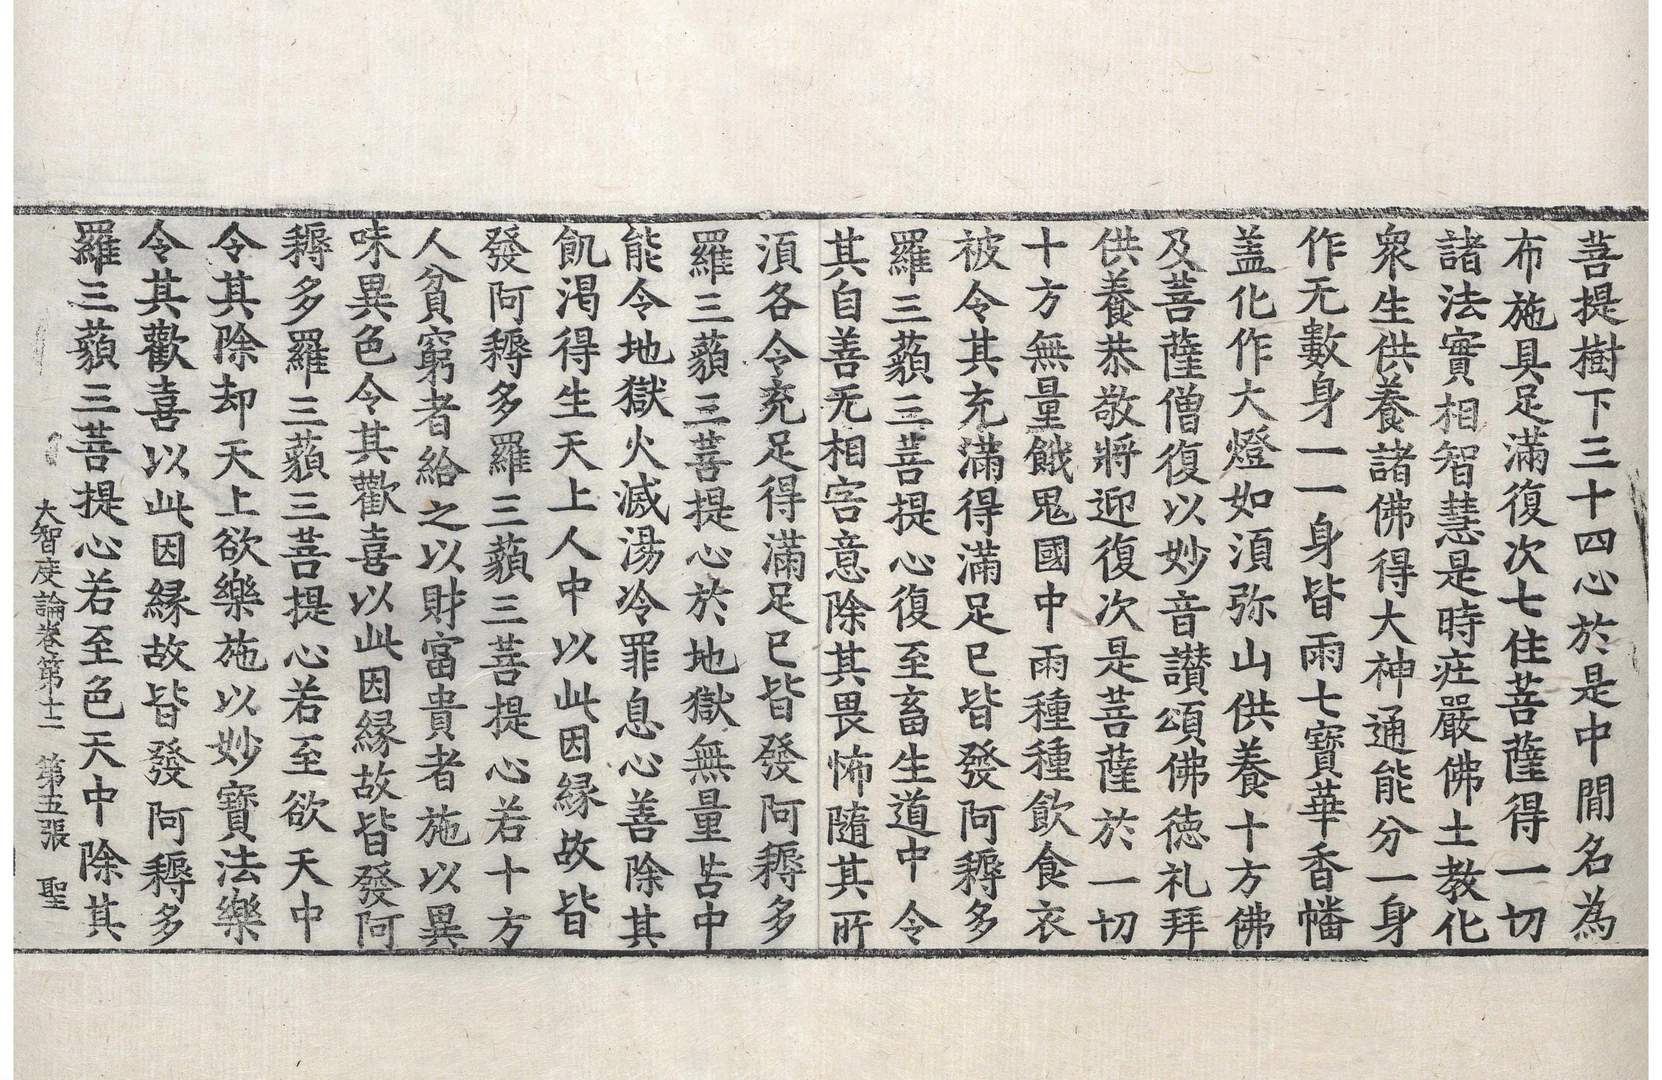 菩提樹下三十四心於是中閒名為
布施具足滿復次七住菩薩得一切
諸法實相智慧是時庄嚴佛土教化
衆生供養諸佛得大神通能分一身
作无數身一一身皆雨七寶華香幡
盖化作大燈如湏弥山供養十方佛
及菩薩僧復以妙音讃頌佛徳礼拜
供養恭敬將迎復次是菩薩於一切
十方無量餓鬼國中雨種種飲食衣
被令其充滿得滿足已皆發阿耨多
羅三藐三菩提心復至畜生道中令
其自善无相害意除其畏怖隨其所
湏各令充足得滿足已皆發阿耨多
羅三藐三菩提心於地獄無量苦中
能令地獄火滅湯冷罪息心善除其
飢渴得生天上人中以此因縁故皆
發阿耨多羅三藐三菩提心若十方
人貧窮者給之以財富貴者施以異
味異色令其歡喜以此因縁故皆發阿
耨多羅三藐三菩提心若至欲天中
令其除却天上欲樂施以妙寶法樂
令其歡喜以此因縁故皆發阿耨多
羅三藐三菩提心若至色天中除其
大智度論卷第十二 第五張 聖